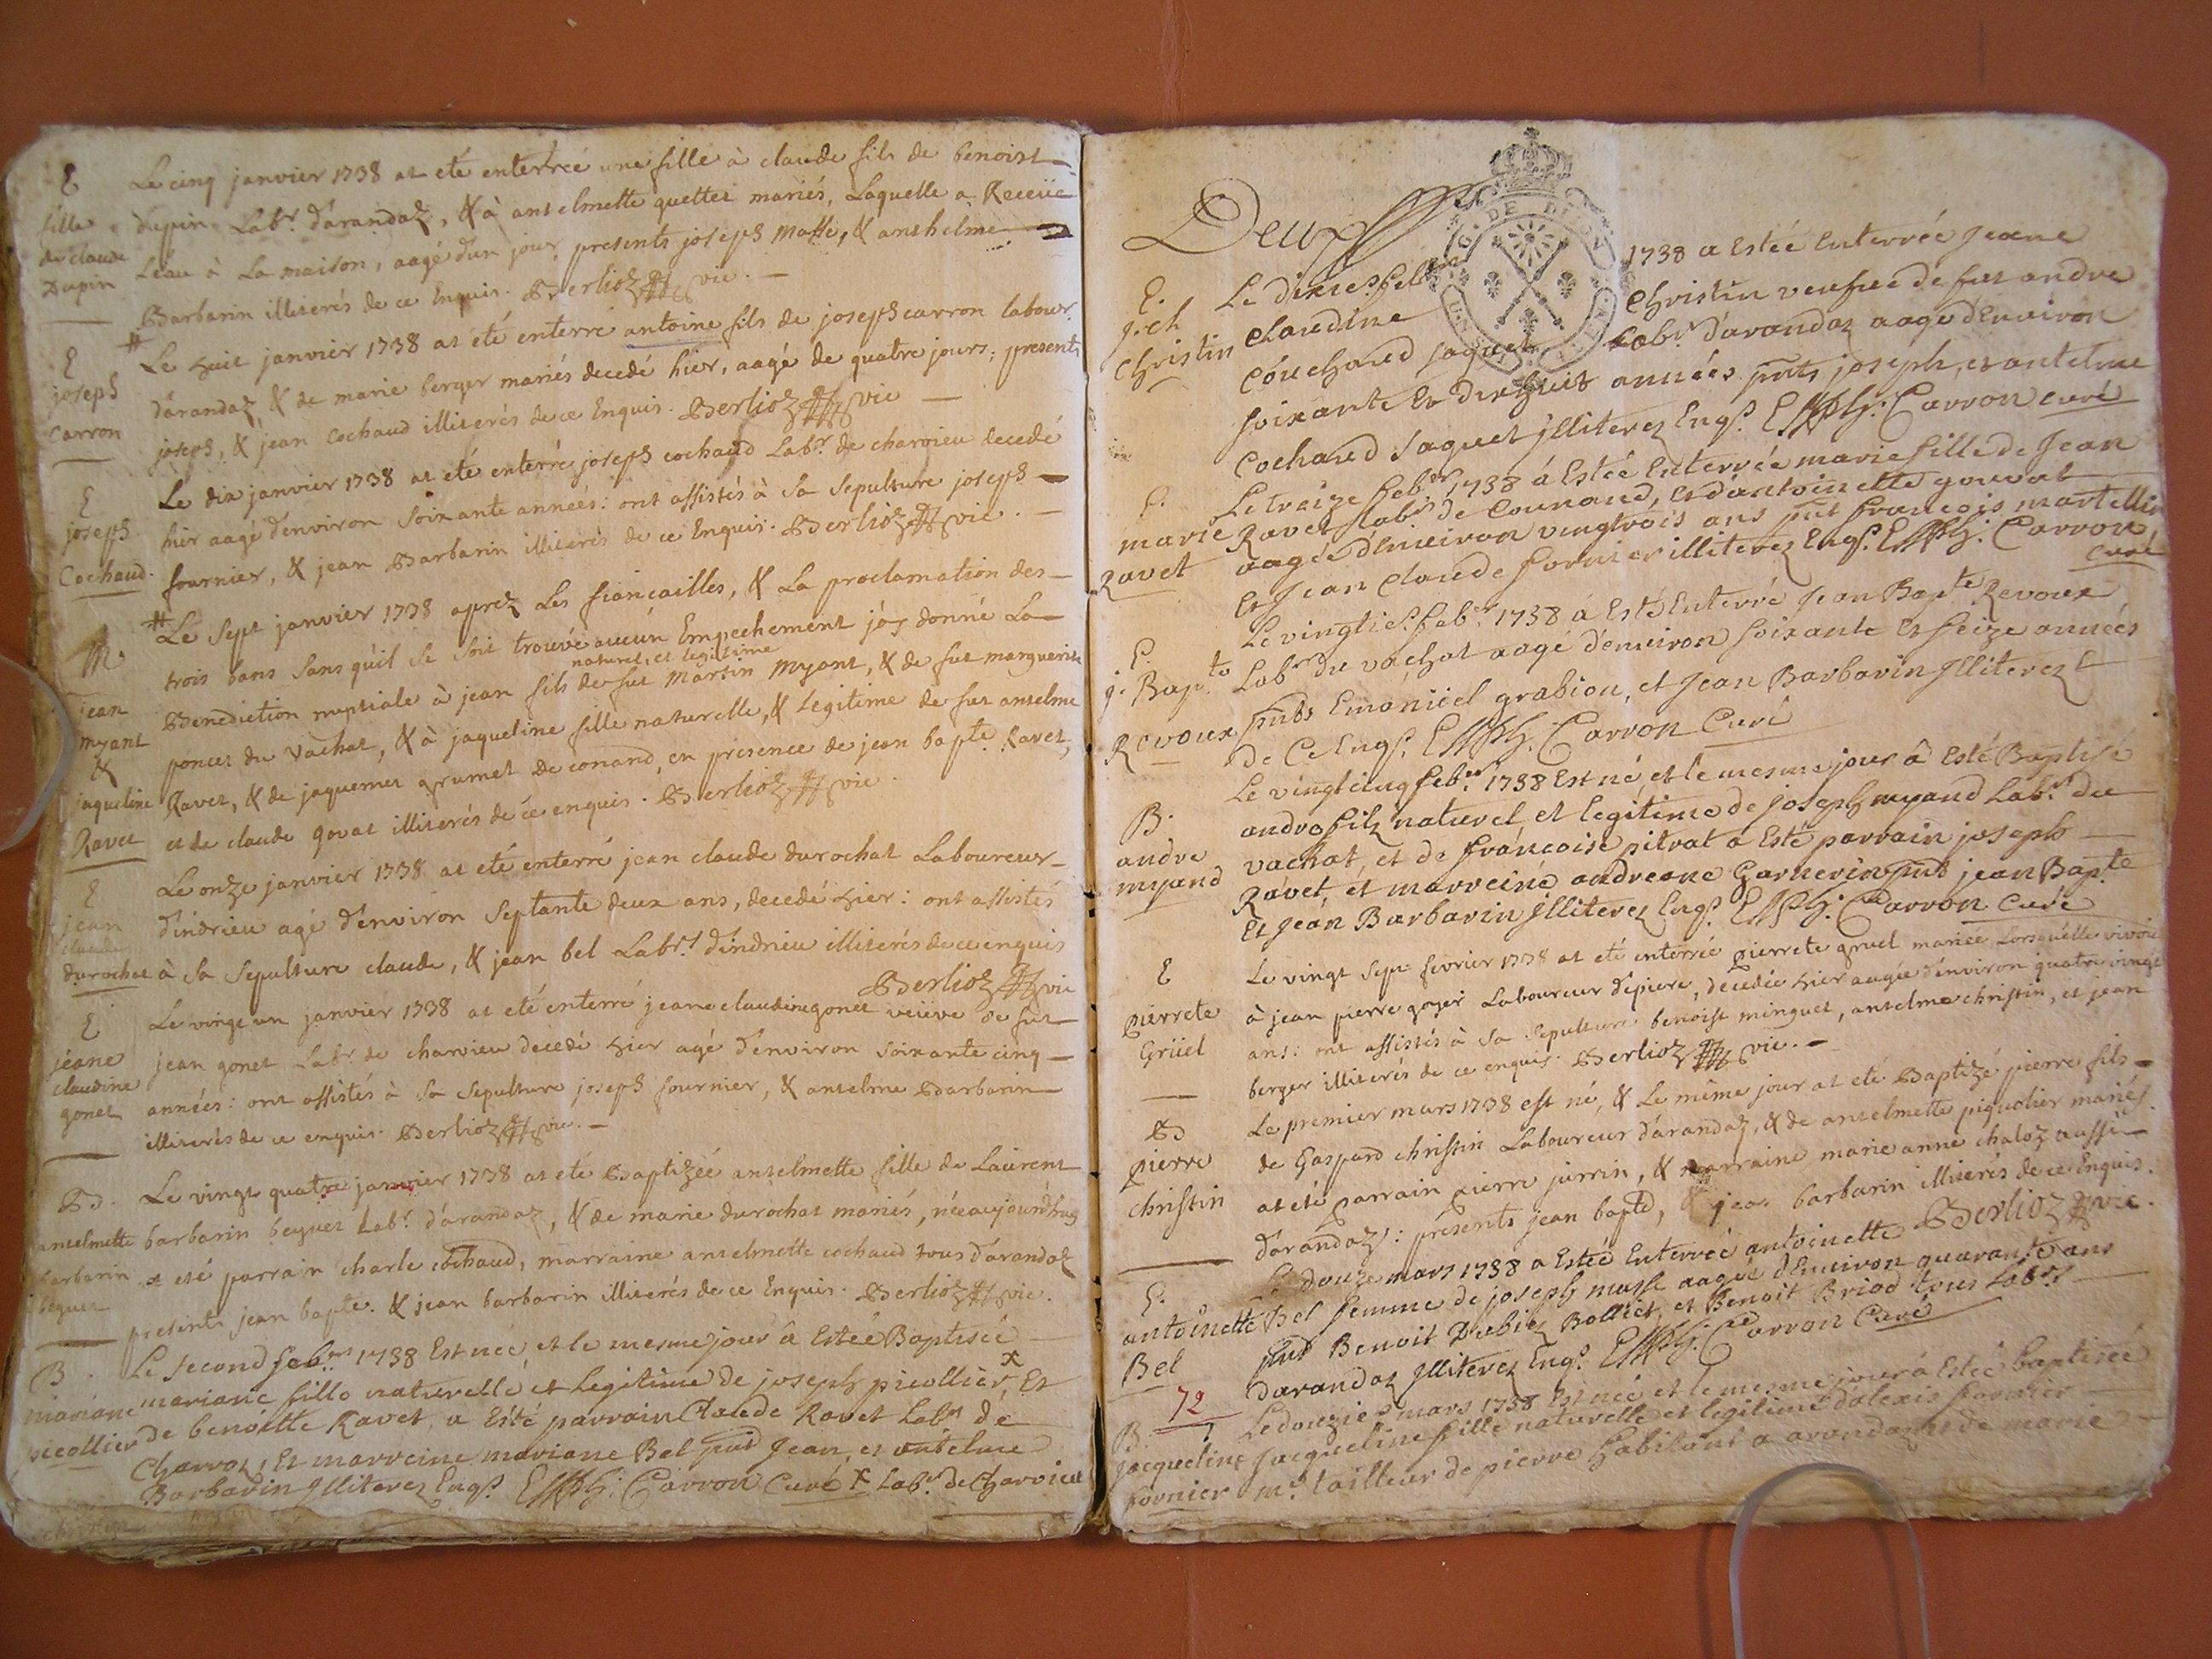 E Le cinq janvier 1738 at eté enterrée une fille à claude fils de benoist
fille dupin Labr. d'arandaz, & à antelmette quettet mariés, Laquelle a Receüe
de claude L'eau à La maison, aagé d'un jour, presents joseph masse, & anthelme
Dupin Barbarin illiterés de ce Enquis. Berlioz vic.
E Le huit janvier 1738 at eté enterré antoine fils de joseph carron labour.
joseph d'arandaz & de marie berger mariés decedé hier, aagé de quatre jours; presents
Carron joseph, & jean Cochaud illiterés de ce Enquis. Berlioz vic
E Le dix janvier 1738 at eté enterré joseph cochaud Labr. de charvieu decedé
joseph hier aagé d'environ soixante années: ont assistés à sa sepulture joseph
Cochaud. fournier, & jean Barbarin illiterés de ce Enquis. Berlioz vic.
# Le sept janvier 1738 aprez Les fiançailles, & La proclamation des
M. trois bans sans qu'il se soit trouvé aucun Empechement j'ay donné La
naturel, et legitime
jean Benediction nuptiale à jean fils de fut Martin Myant, & de fut marguerite
myant poncet du Vachat, & à jaqueline fille naturelle, & Legitime de fut antelme
&
jaqueline Ravet, & de jaquemet grumet de conand, en presence de jean bapte. Ravet,
Ravet et de claude govat illiterés de ce enquis. Berlioz vic.
E Le onze janvier 1738 at eté enterré jean claude durochat Laboureur
jean d'indrieu agé d'environ septante deux ans, decedé hier: ont assistés
claude
durochat à sa sepulture claude, & jean bel Labrs. d'indrieu illiterés de ce enquis
Berlioz vic
E Le vingt un janvier 1738 at eté enterré jeane claudine gonet veüve de fut
jéane jean gonet Labr. de charvieu decedé hier agé d'environ soixante cinq
claudine années: ont assistés à sa sepulture joseph fournier, & antelme Barbarin
gonet illiterés de ce enquis. Berlioz vic.
B. Le vingt quatre janvier 1738 at eté Baptizée antelmette fille de Laurent
antelmette barbarin beguet Labr. d'arandaz, & de marie durochat mariés, née aujourd'huy
barbarin at eté parrain charle cochaud, marraine antelmette cochaud tous d'arandaz
beguet presents jean bapte. & jean barbarin illiterés de ce Enquis. Berlioz vic.
B. Le second feb. 1738 Est née et le mesme jour a Estée Baptisée
mariane mariane fille naturelle et Legitime de joseph picollier x, Et
picollier de benoitte Ravet, a Esté parrain Claude Ravet Labr de
Charvoz, Et marreine mariane Bel pnts Jean, et antelme
Barbarin Jlliterez Enqs. Carron Curé x Labr. de Charvieu
Deux
E. Le dixie. feb. 1738 a Estée Enterrée Jeane
j. ch Claudine Christin veufve de fut andre
Christin Couchaud Jaquet Labr. d'arandaz aagé d'Environ
soixante Et dixhuit années pnts joseph, et antelme
Cochaud Jaquet Jlliterez Enqs. Carron curé
E. Le treize feb. 1738 á Estée Enterrée marie fille de Jean
marie Ravet labr. de Counand, Et d'antoinette gouvat
Ravet aagée d'Enviroŋ vingtrois ans pnt francois martellin
Et Jean Claude fornier illiterez Enqs. Carron
curé
E. Le vingtie. feb. 1738 á Esté Enterré Jean Bapte Revoux
j. Bapte Labr du vachat aagé d'environ soixante Et seize années
Revoux pnts Emanüel grabiou, et Jean Barbarin Jlliterez
de Ce Enqs. Carron Curé
Le vingt cinq feb. 1738 Est né, et le mesme jour â Esté Baptisé
B. andre filz naturel et legitime de joseph myand Labr. du
andre vachat, et de francoise pitrat a Esté parrain joseph
myand Ravet, et marreine andreane Garnerin pnts jean Bapte
Et Jean Barbarin Jlliterez Enqs. Carron Curé
E Le vingt sept fevrier 1738 at eté enterrée pierrete gruel mariée Lorsqu'elle vivoit
pierrete à jean pierre goyer Laboureur d'epiere, decedée hier aagée d'environ quatre vingt
Grüel ans: ont assistés à sa sepulture benoist minguet, antelme christin, et jean
berger illiterés de ce enquis. Berlioz vic.
B Le premier mars 1738 est né, & Le même jour at eté Baptizé pierre fils
pierre de Gaspard christin Laboureur d'arandaz, & de antelmette piquolier mariés
christin at eté parrain pierre jurrin, & marraine marie anne chaloz aussi
d'arandaz: presents jean bapte, & jean barbarin illiterés de ce Enquis.
Berlioz vic.
E. Le douze mars 1738 a Estée Enterrée antoinette
antoinette Bel femme de joseph masse aagée d'Environ quarante ans
Bel pnts Benoit Bollict, et Benoit Briod tous Labrs
72 darandaz Jlliterez Enqs. Carron Curé
B. Le douzie. mars 1738 Est née et le mesme jour a Estée baptisée
Jacqueline Jacqueline fille naturelle et legitime d'alexis fornier
fornier me. tailleur de pierre habitant a arandaz et de marie